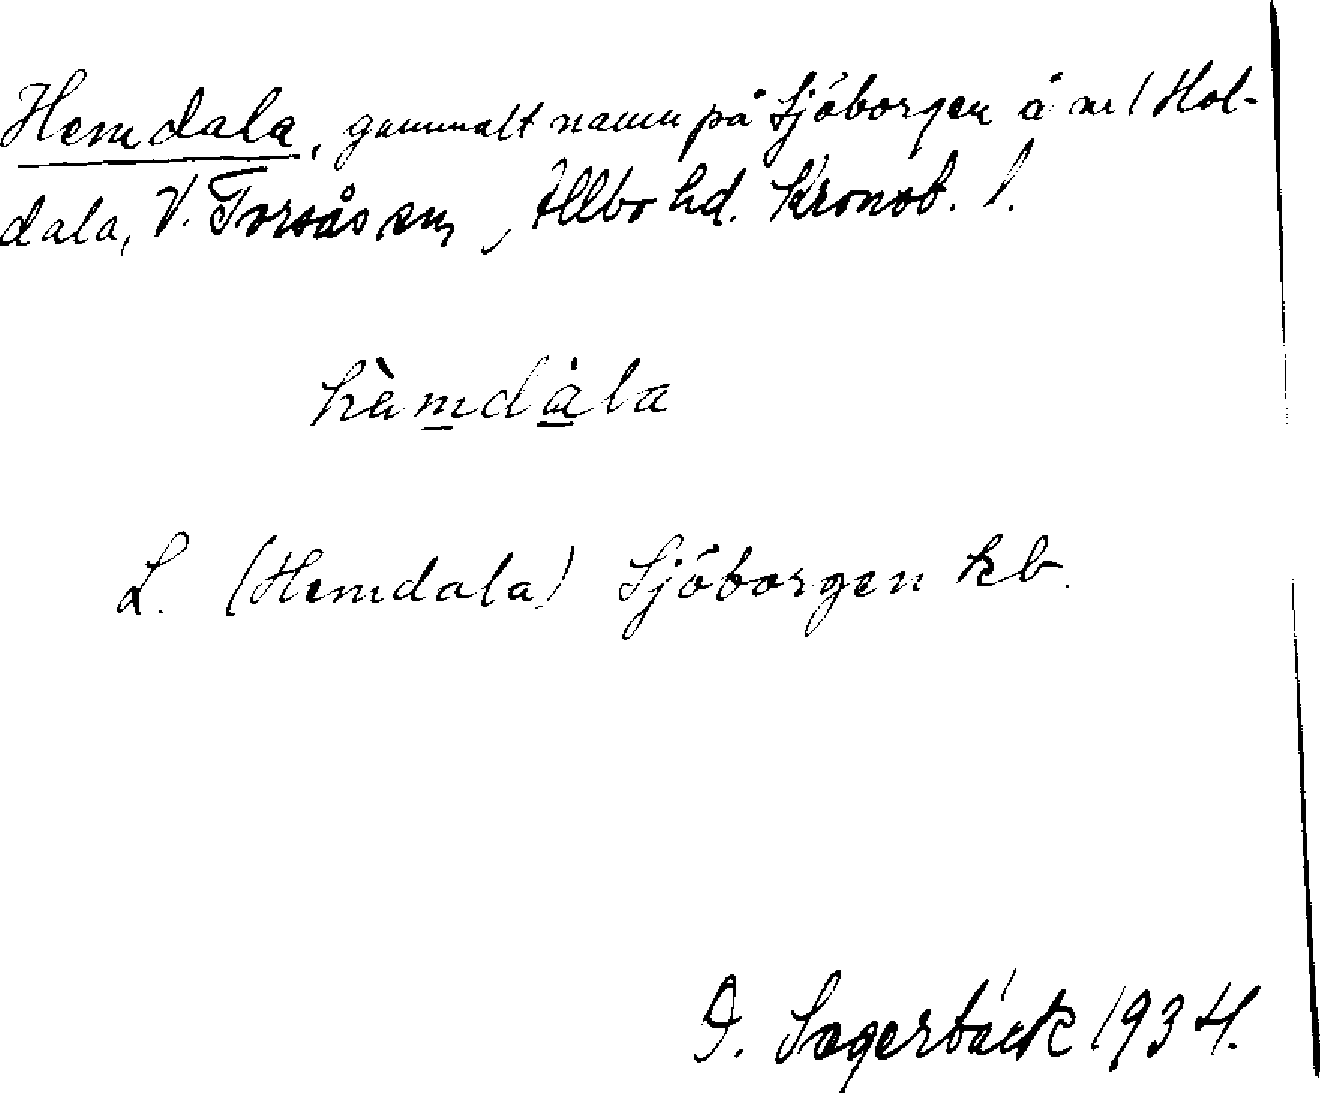 Hemdala, gammalt namn på Sjöborgen å nr 1 Hol-
dala, V. Torsås sn, Allbo hd. Kronob. l.
hèmdàla
L. (Hemdala) Sjöborgen kb.
D. Sagerbäck 1934.